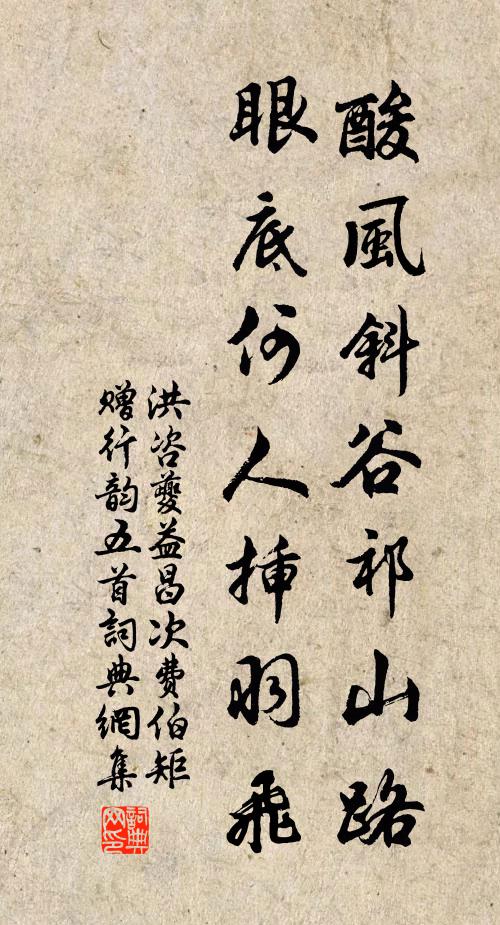 酸風斜谷祁山路
眼底何人揷羽飛
洪咨夔益昌次費伯矩
贈行韵五首詞典網集
詞典网印